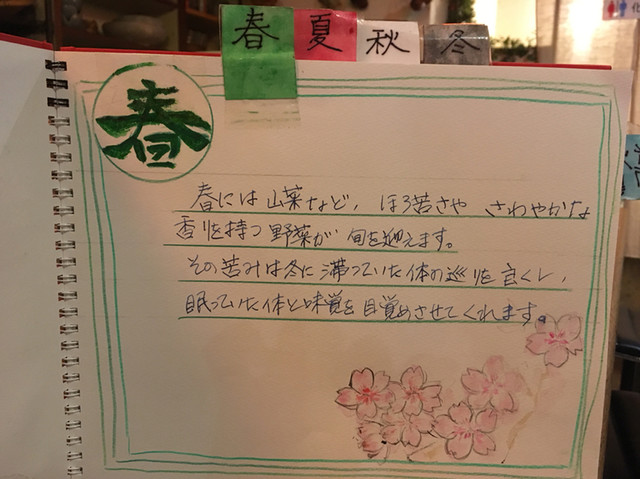 春 夏 秋 冬
春
春には山菜など、ほろ苦さや さわやかな
香りを持つ野菜が 旬を迎えます。
その苦みは冬に滞っていた体の巡りを良くし、
眠っていた体と味覚を目覚めさせてくれます。